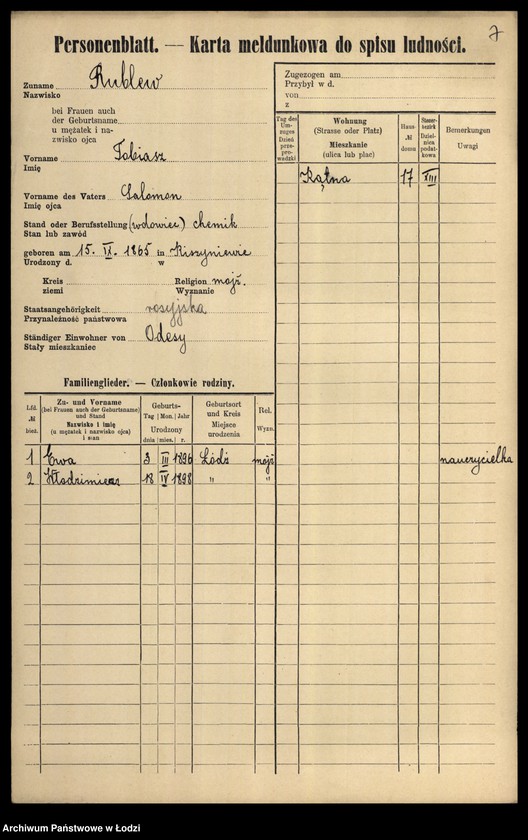 7
Personenblatt. — Karta meldunkowa do spisu ludności.
Zuname Rublew
Nazwisko
bei Frauen auch
der Geburtsname
u mężatek i na-
zwisko ojca
Vorname Tobiasz
Imię
Vorname des Vaters Salomon
Imię ojca
Stand oder Berufsstellung (wdowiec) chemik
Stan lub zawód
geboren am 15. IX. 1865 in Kiszyniewie
Urodzony d. w
Kreis Religion mojż.
ziemi Wyznanie
Staatsangehörigkeit rosyjska
Przynależność państwowa
Ständiger Einwohner von Odesy
Stały mieszkaniec
Zugezogen am
Przybył w d.
von
z
Tag des Um-zuges Dzień prze-pro-wadzki
Wohnung (Strasse oder Platz) Mieszkanie (ulica lub plac)
Haus- № domu
Steuer-bezirk Dziel-nica podat-kowa
Bemerkungen Uwagi
Kątna 17 XIII
Familienglieder. — Członkowie rodziny.
Lfd. № bież.
Zu- und Vorname (bei Frauen auch der Geburtsname) und Stand Nazwisko i imię (u mężatek i nazwisko ojca) i stan
Geburts- Tag Mon. Jahr Urodzony dnia mies. r.
Geburtsort und Kreis Miejsce urodzenia
Rel. Wyzn.
1 Ewa 3 III 1896 Łódź mojż nauczycielka
2 Włodzimierz 18 IV 1898 " "
Archiwum Państwowe w Łodzi